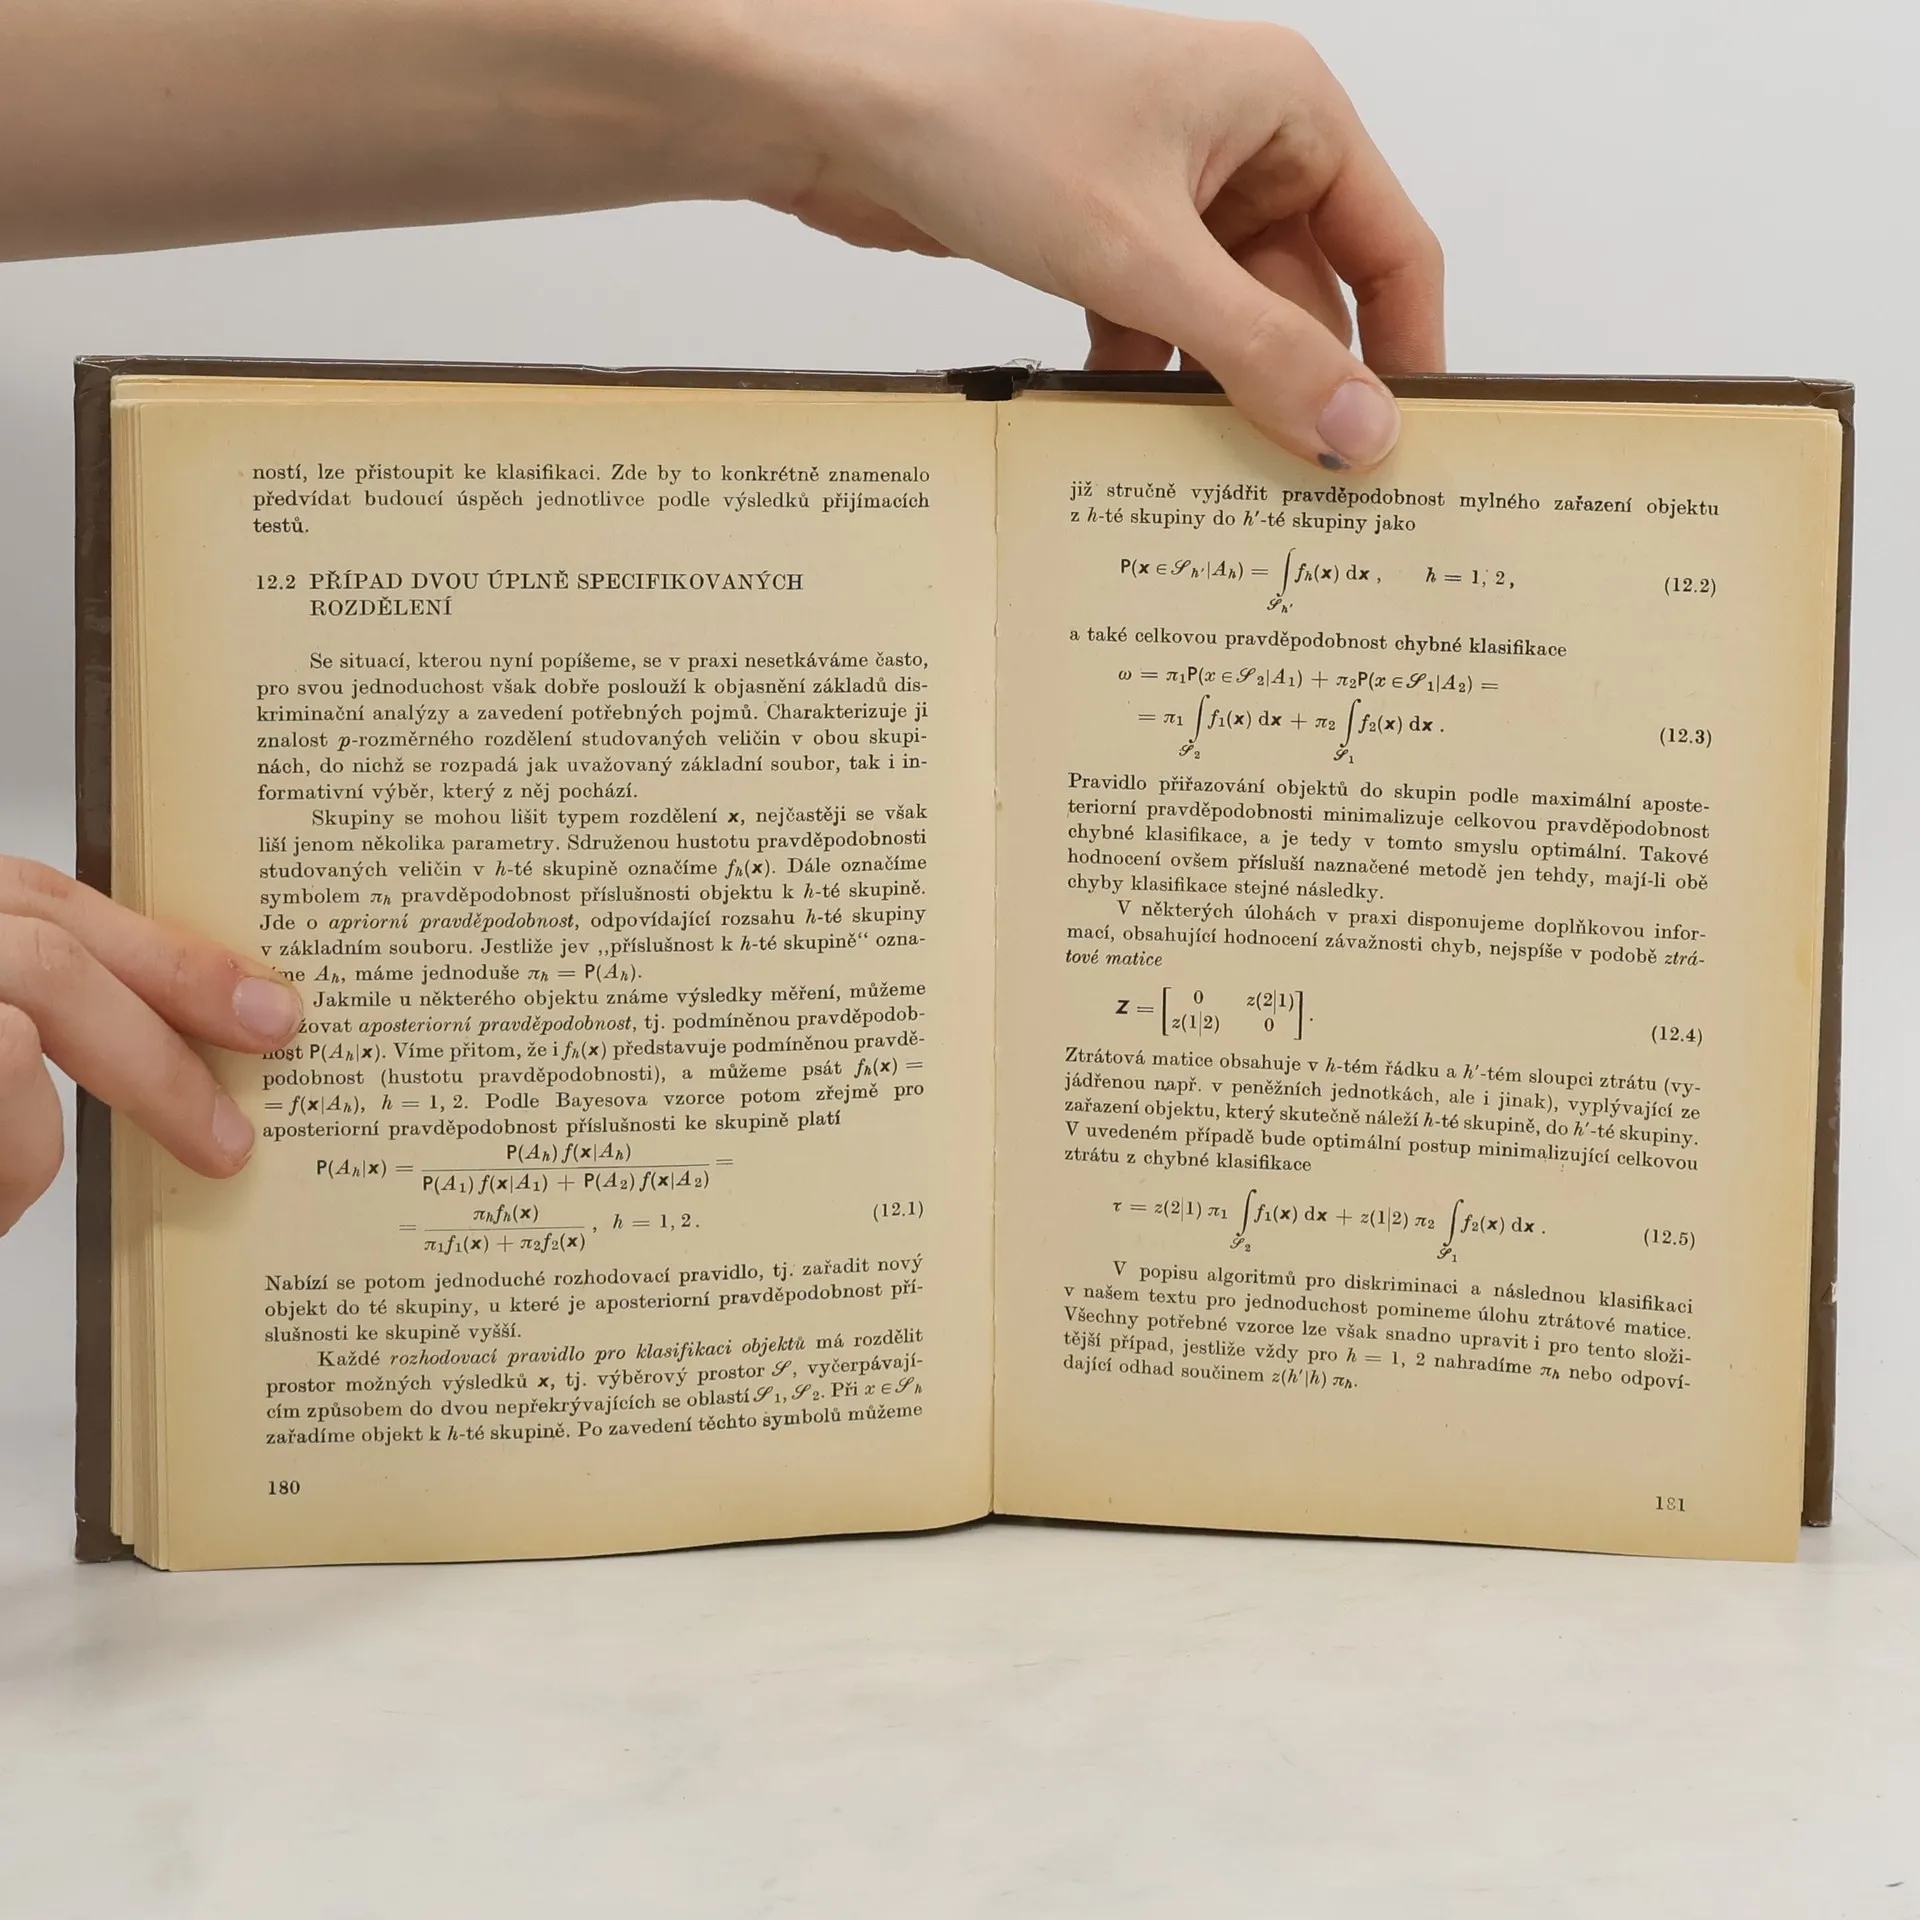 ností, lze přistoupit ke klasifikaci. Zde by to konkrétně znamenalo
předvídat budoucí úspěch jednotlivce podle výsledků přijímacích
testů.
12.2 PŘÍPAD DVOU ÚPLNĚ SPECIFIKOVANÝCH
ROZDĚLENÍ
Se situací, kterou nyní popíšeme, se v praxi nesetkáváme často,
pro svou jednoduchost však dobře poslouží k objasnění základů dis-
kriminační analýzy a zavedení potřebných pojmů. Charakterizuje ji
znalost p-rozměrného rozdělení studovaných veličin v obou skupi-
nách, do nichž se rozpadá jak uvažovaný základní soubor, tak i in-
formativní výběr, který z něj pochází.
Skupiny se mohou lišit typem rozdělení x, nejčastěji se však
liší jenom několika parametry. Sdruženou hustotu pravděpodobnosti
studovaných veličin v h-té skupině označíme fₕ(x). Dále označíme
symbolem πₕ pravděpodobnost příslušnosti objektu k h-té skupině.
Jde o apriorní pravděpodobnost, odpovídající rozsahu h-té skupiny
v základním souboru. Jestliže jev „příslušnost k h-té skupině“ ozna-
me Aₕ, máme jednoduše πₕ = P(Aₕ).
Jakmile u některého objektu známe výsledky měření, můžeme
žovat aposteriorní pravděpodobnost, tj. podmíněnou pravděpodob-
nost P(Aₕ|x). Víme přitom, že i fₕ(x) představuje podmíněnou pravdě-
podobnost (hustotu pravděpodobnosti), a můžeme psát fₕ(x) =
= f(x|Aₕ), h = 1, 2. Podle Bayesova vzorce potom zřejmě pro
aposteriorní pravděpodobnost příslušnosti ke skupině platí
P(Aₕ|x) = P(Aₕ) f(x|Aₕ) / P(A₁) f(x|A₁) + P(A₂) f(x|A₂) =
= πₕfₕ(x) / π₁f₁(x) + π₂f₂(x) , h = 1, 2. (12.1)
Nabízí se potom jednoduché rozhodovací pravidlo, tj. zařadit nový
objekt do té skupiny, u které je aposteriorní pravděpodobnost pří-
slušnosti ke skupině vyšší.
Každé rozhodovací pravidlo pro klasifikaci objektů má rozdělit
prostor možných výsledků x, tj. výběrový prostor 𝒮, vyčerpávají-
cím způsobem do dvou nepřekrývajících se oblastí 𝒮₁, 𝒮₂. Při x ∈ 𝒮ₕ
zařadíme objekt k h-té skupině. Po zavedení těchto symbolů můžeme
180
již stručně vyjádřit pravděpodobnost mylného zařazení objektu
z h-té skupiny do h′-té skupiny jako
P(x ∈ 𝒮ₕ′|Aₕ) = ∫ fₕ(x) dx , h = 1, 2, (12.2)
𝒮ₕ′
a také celkovou pravděpodobnost chybné klasifikace
ω = π₁P(x ∈ 𝒮₂|A₁) + π₂P(x ∈ 𝒮₁|A₂) =
= π₁ ∫ f₁(x) dx + π₂ ∫ f₂(x) dx . (12.3)
𝒮₂ 𝒮₁
Pravidlo přiřazování objektů do skupin podle maximální aposte-
teriorní pravděpodobnosti minimalizuje celkovou pravděpodobnost
chybné klasifikace, a je tedy v tomto smyslu optimální. Takové
hodnocení ovšem přísluší naznačené metodě jen tehdy, mají-li obě
chyby klasifikace stejné následky.
V některých úlohách v praxi disponujeme doplňkovou infor-
mací, obsahující hodnocení závažnosti chyb, nejspíše v podobě ztrá-
tové matice
Z = [ 0 z(2|1)
z(1|2) 0 ]. (12.4)
Ztrátová matice obsahuje v h-tém řádku a h′-tém sloupci ztrátu (vy-
jádřenou např. v peněžních jednotkách, ale i jinak), vyplývající ze
zařazení objektu, který skutečně náleží h-té skupině, do h′-té skupiny.
V uvedeném případě bude optimální postup minimalizující celkovou
ztrátu z chybné klasifikace
τ = z(2|1) π₁ ∫ f₁(x) dx + z(1|2) π₂ ∫ f₂(x) dx . (12.5)
𝒮₂ 𝒮₁
V popisu algoritmů pro diskriminaci a následnou klasifikaci
v našem textu pro jednoduchost pomineme úlohu ztrátové matice.
Všechny potřebné vzorce lze však snadno upravit i pro tento složi-
tější případ, jestliže vždy pro h = 1, 2 nahradíme πₕ nebo odpoví-
dající odhad součinem z(h′|h) πₕ.
181